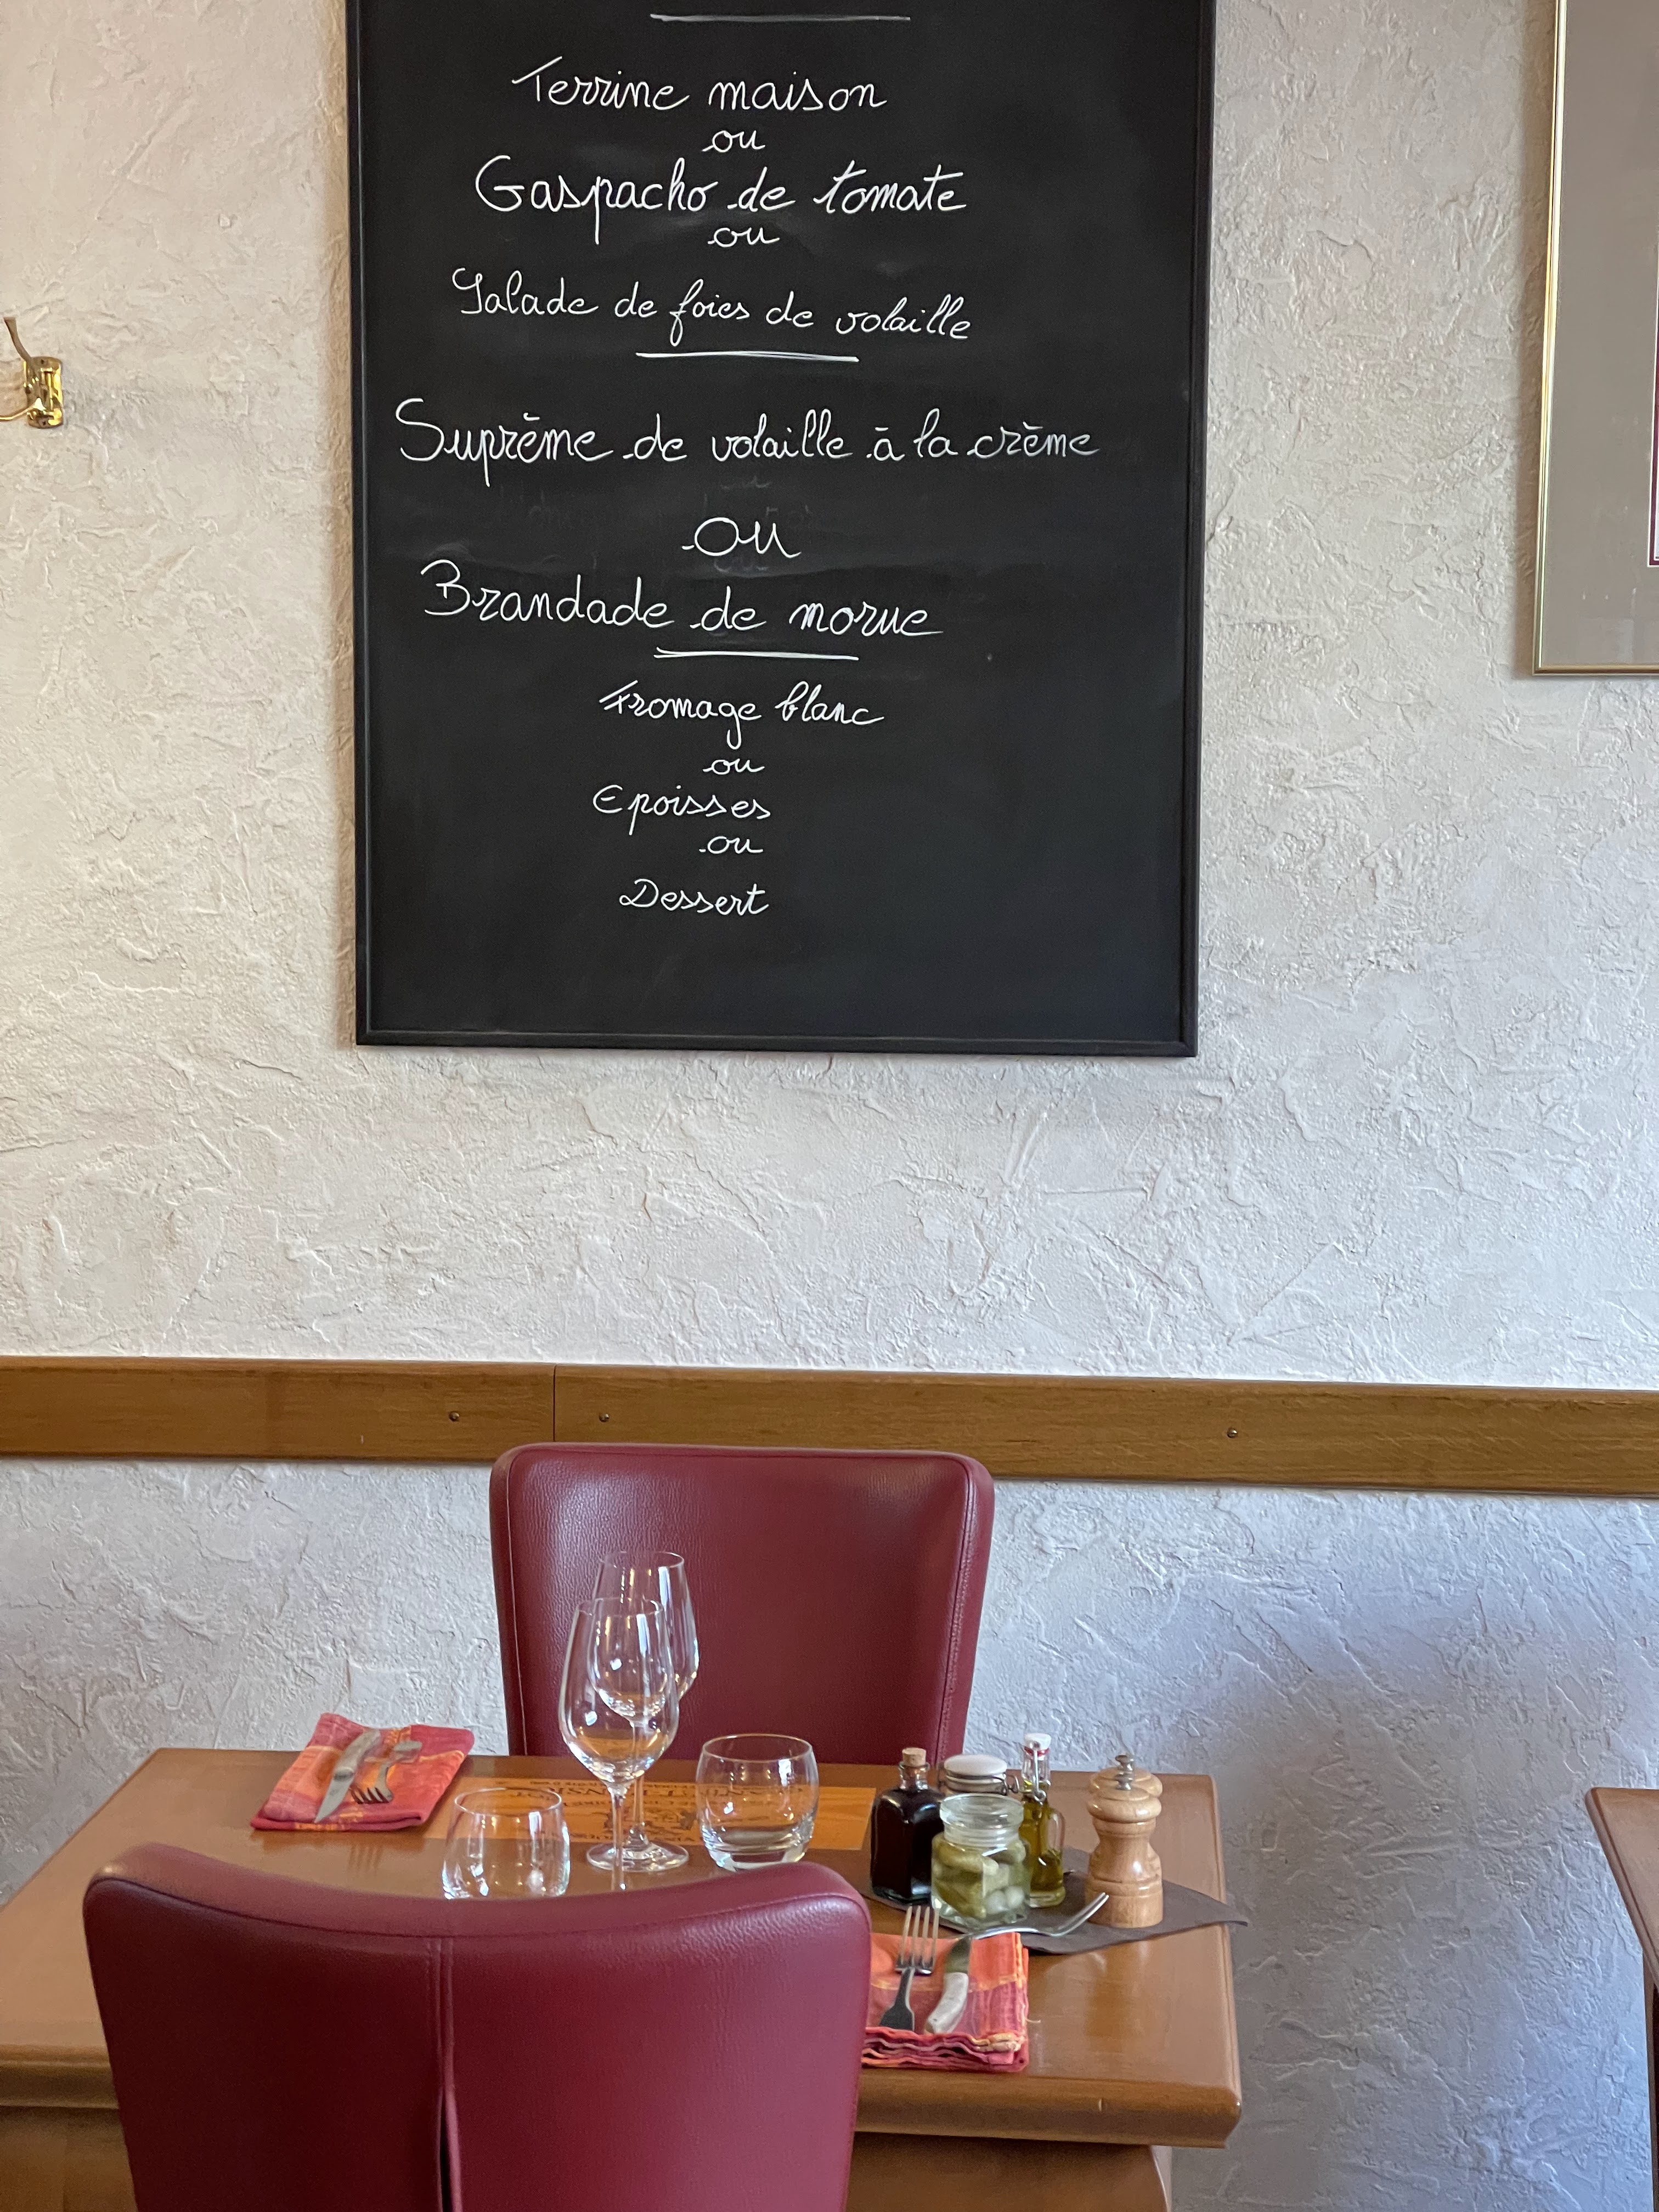 Terrine maison
ou
Gaspacho de tomate
ou
Salade de foies de volaille
Suprême de volaille à la crème
ou
Brandade de morue
Fromage blanc
ou
Epoisses
ou
Dessert